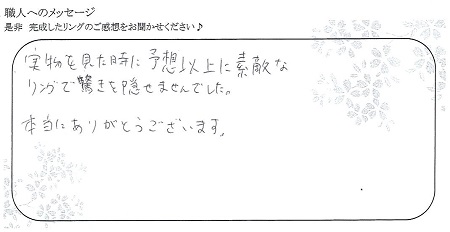 職人へのメッセージ
是非 完成したリングのご感想をお聞かせください♪
実物を見た時に予想以上に素敵な
リングで驚きを隠せませんでした。
本当にありがとうございます。